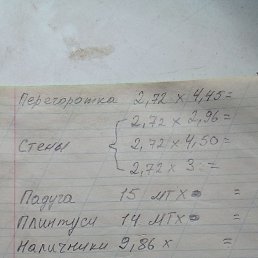 Перегородка 2,72 х 4,45=
2,72 х 2,96=
Стены 2,72 х 4,50=
2,72 х 3 =
Падуга 15 мтх =
Плинтуси 14 мтх =
Наличники 9,86 х =